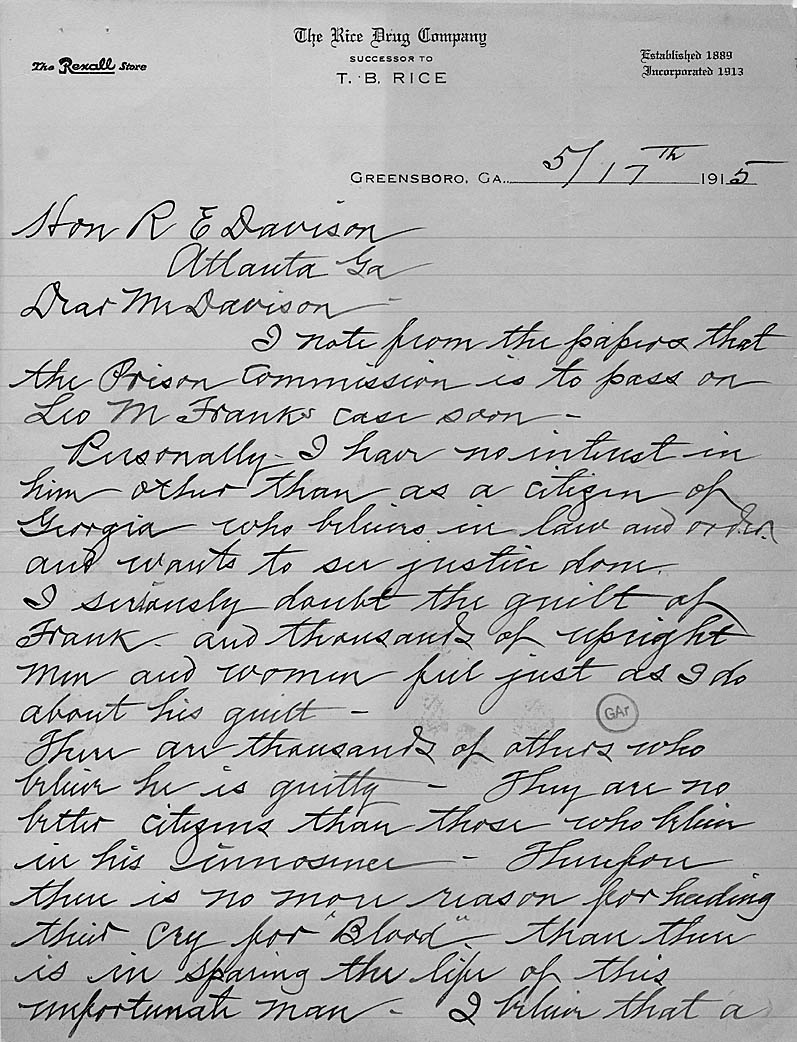 The Rice Drug Company
SUCCESSOR TO
T. B. RICE
The Rexall Store
Established 1889
Incorporated 1913
GREENSBORO, GA. 5/17th 1915
Hon R E Davison
Atlanta Ga
Dear Mr Davison -
I note from the papers that
the Prison Commission is to pass on
Leo M Franks case soon -
Personally - I have no interest in
him other than as a citizen of
Georgia who believs in law and order
and wants to see justice done.
I seriously doubt the guilt of
Frank - and thousands of upright
men and women feel just as I do
about his guilt -
There are thousands of others who
believe he is guilty - They are no
better citizens than those who believe
in his innosence - Therefore
there is no more reason for heeding
their cry for "Blood" - than there
is in sparing the life of this
unfortunate man - I believe that a
GAr